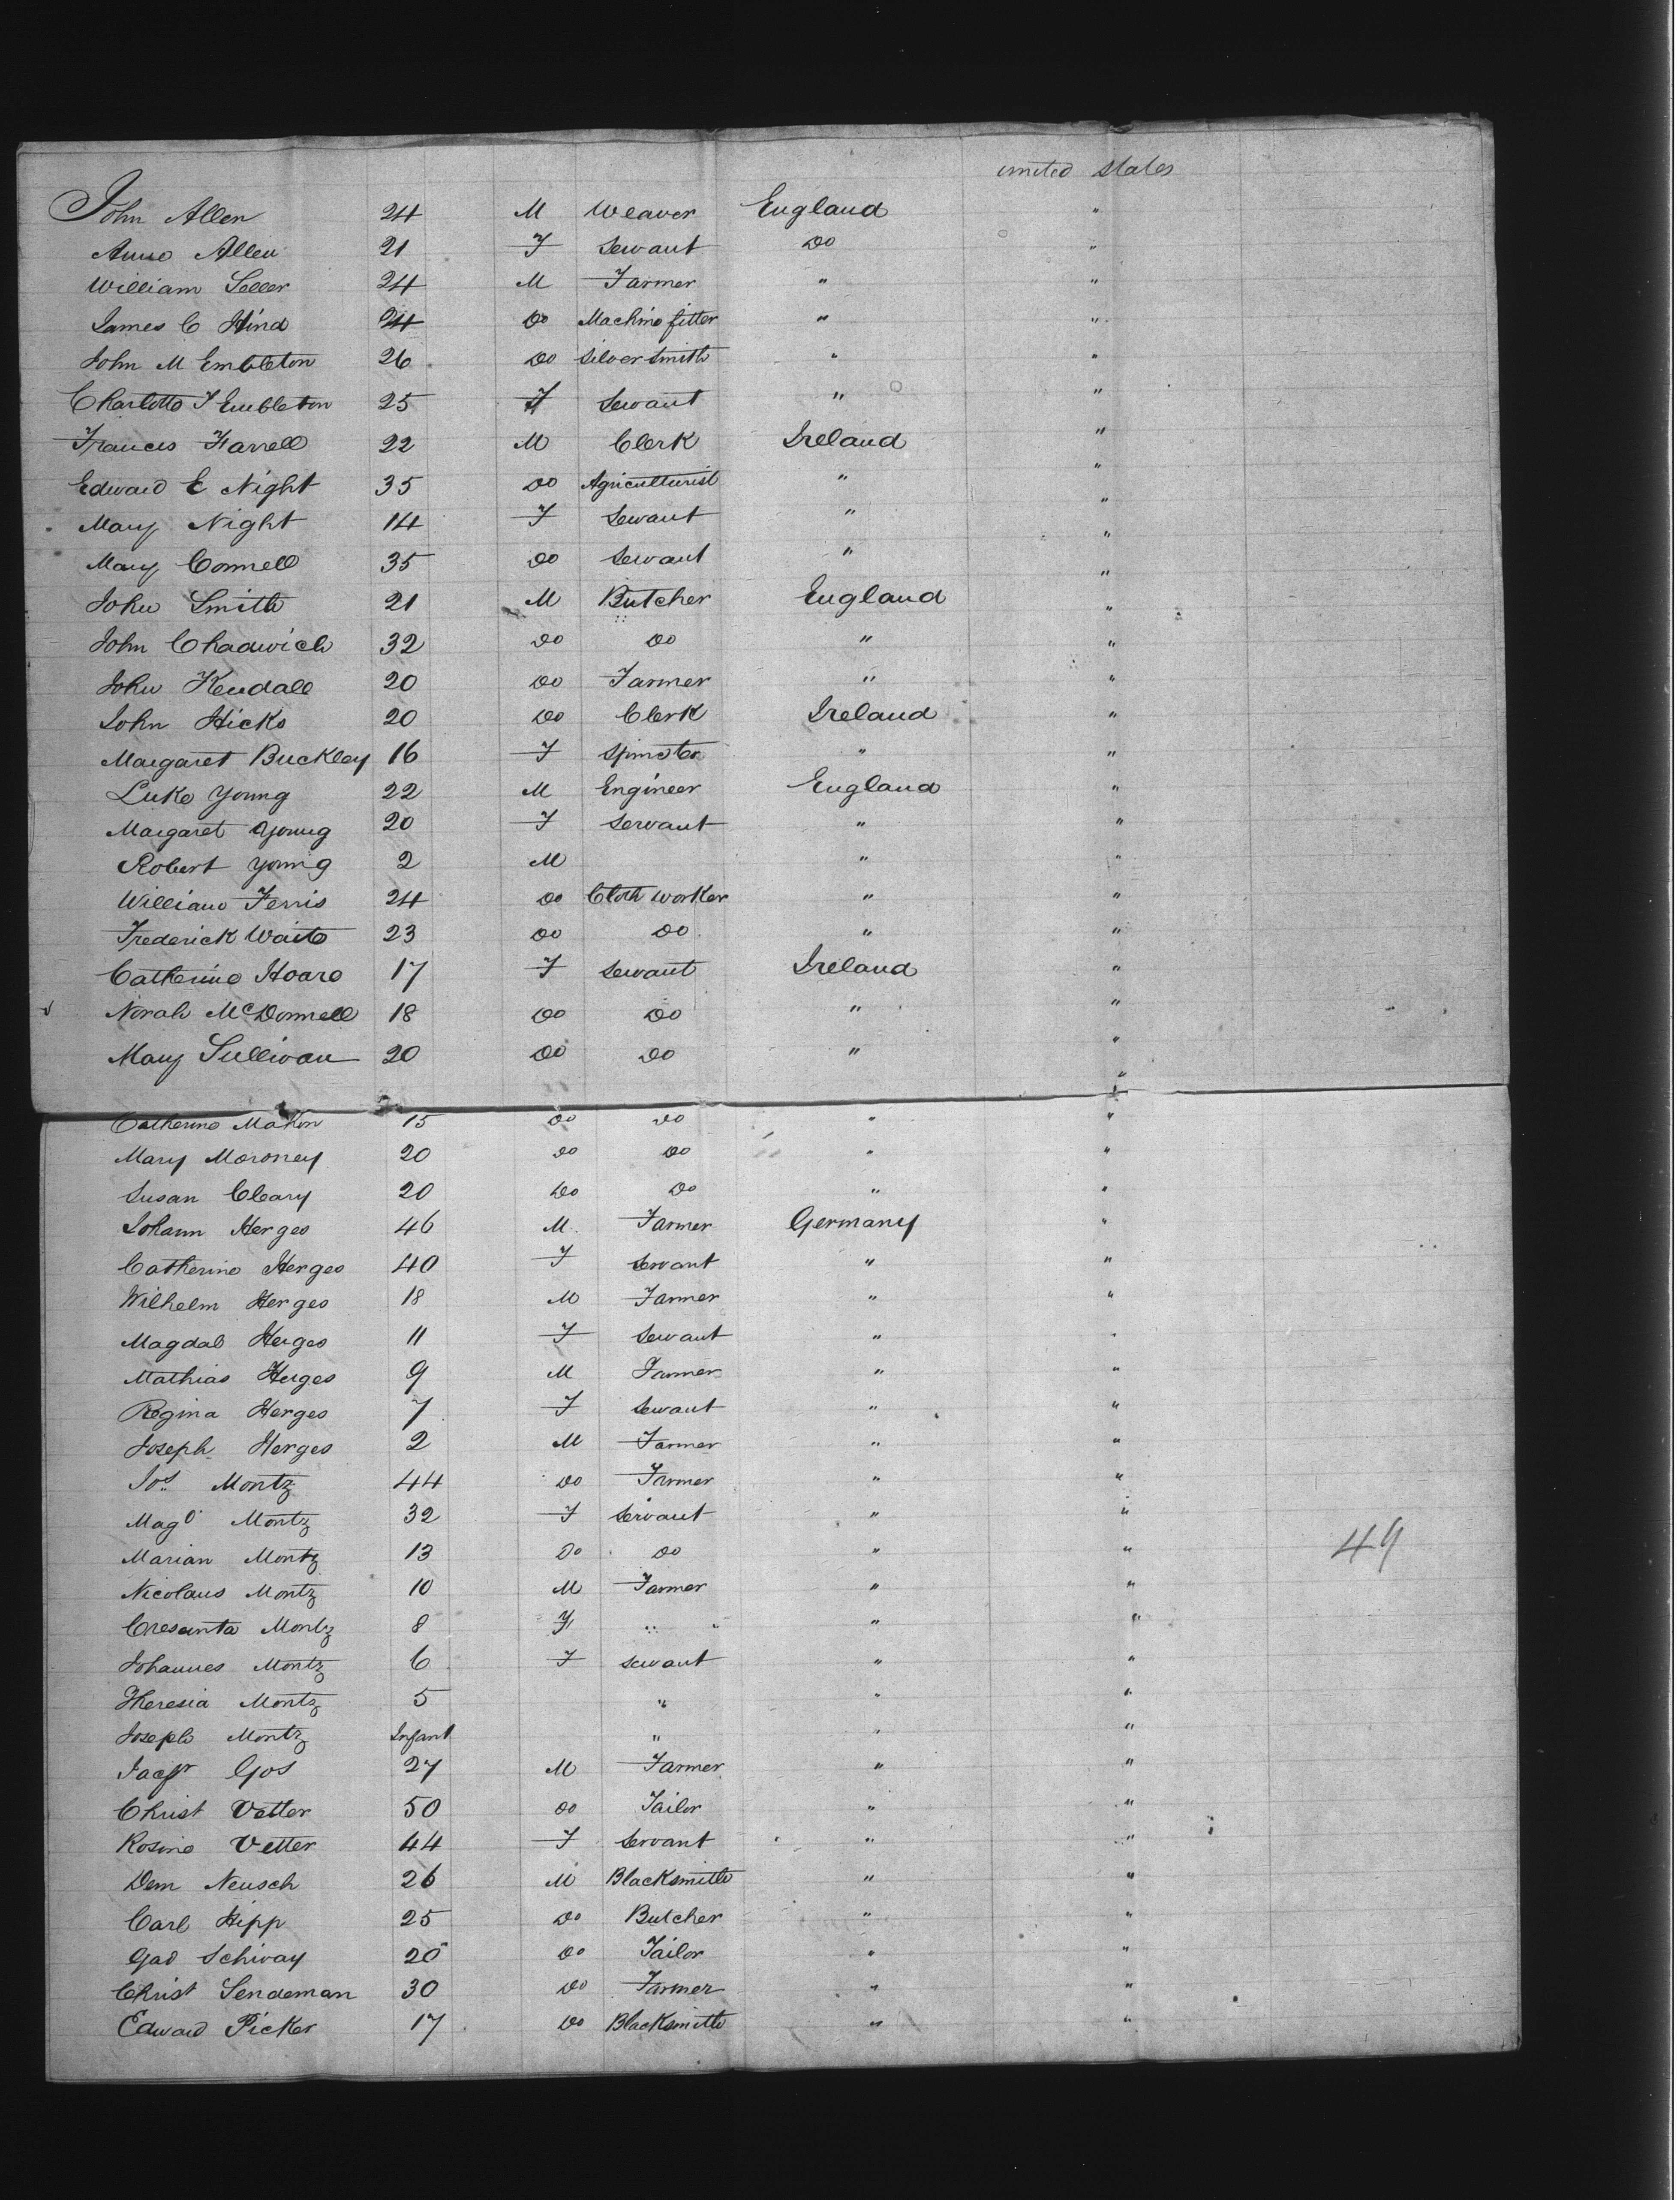 united states
John Allen 24 M Weaver England "
Anne Allen 21 F Servant Do "
William Seller 24 M Farmer " "
James C Hind 24 Do Machine fitter " "
John M Embleton 26 Do Silver Smith " "
Charlotte F Embleton 25 F Servant " "
Frances Farrell 22 M Clerk Ireland "
Edward E Night 35 Do Agriculturist " "
Mary Night 14 F Servant " "
Mary Connell 35 Do Servant " "
John Smith 21 M Butcher England "
John Chadwick 32 Do Do " "
John Kendall 20 Do Farmer " "
John Hicks 20 Do Clerk Ireland "
Margaret Buckley 16 F Spinster " "
Luke Young 22 M Engineer England "
Margaret Young 20 F Servant " "
Robert Young 2 M " "
William Ferris 24 Do Cloth worker " "
Frederick Waite 23 Do Do " "
Catherine Hoare 17 F Servant Ireland "
Norah McDonnell 18 Do Do " "
Mary Sullivan 20 Do Do " "
Catherine Makin 15 Do Do " "
Mary Moroney 20 Do Do " "
Susan Cleary 20 Do Do " "
Johann Herges 46 M Farmer Germany "
Catherine Herges 40 F Servant " "
Wilhelm Herges 18 M Farmer " "
Magdal Herges 11 F Servant " "
Mathias Herges 9 M Farmer " "
Regina Herges 7 F Servant " "
Joseph Herges 2 M Farmer " "
Jos Montz 44 Do Farmer " "
Magd Montz 32 F Servant " "
Marian Montz 13 Do Do " " 49
Nicolaus Montz 10 M Farmer " "
Cresenta Montz 8 F " " "
Johannes Montz 6 F Servant " "
Theresia Montz 5 " " "
Joseph Montz Infant " " "
Gos 27 M Farmer " "
Christ Vetter 50 Do Tailor " "
Rosine Vetter 44 F Servant " "
Dem Neusch 26 M Blacksmith " "
Carl Hipp 25 Do Butcher " "
Gad Schivay 20 Do Tailor " "
Christ Sendeman 30 Do Farmer " "
Edward Picker 17 Do Blacksmith " "